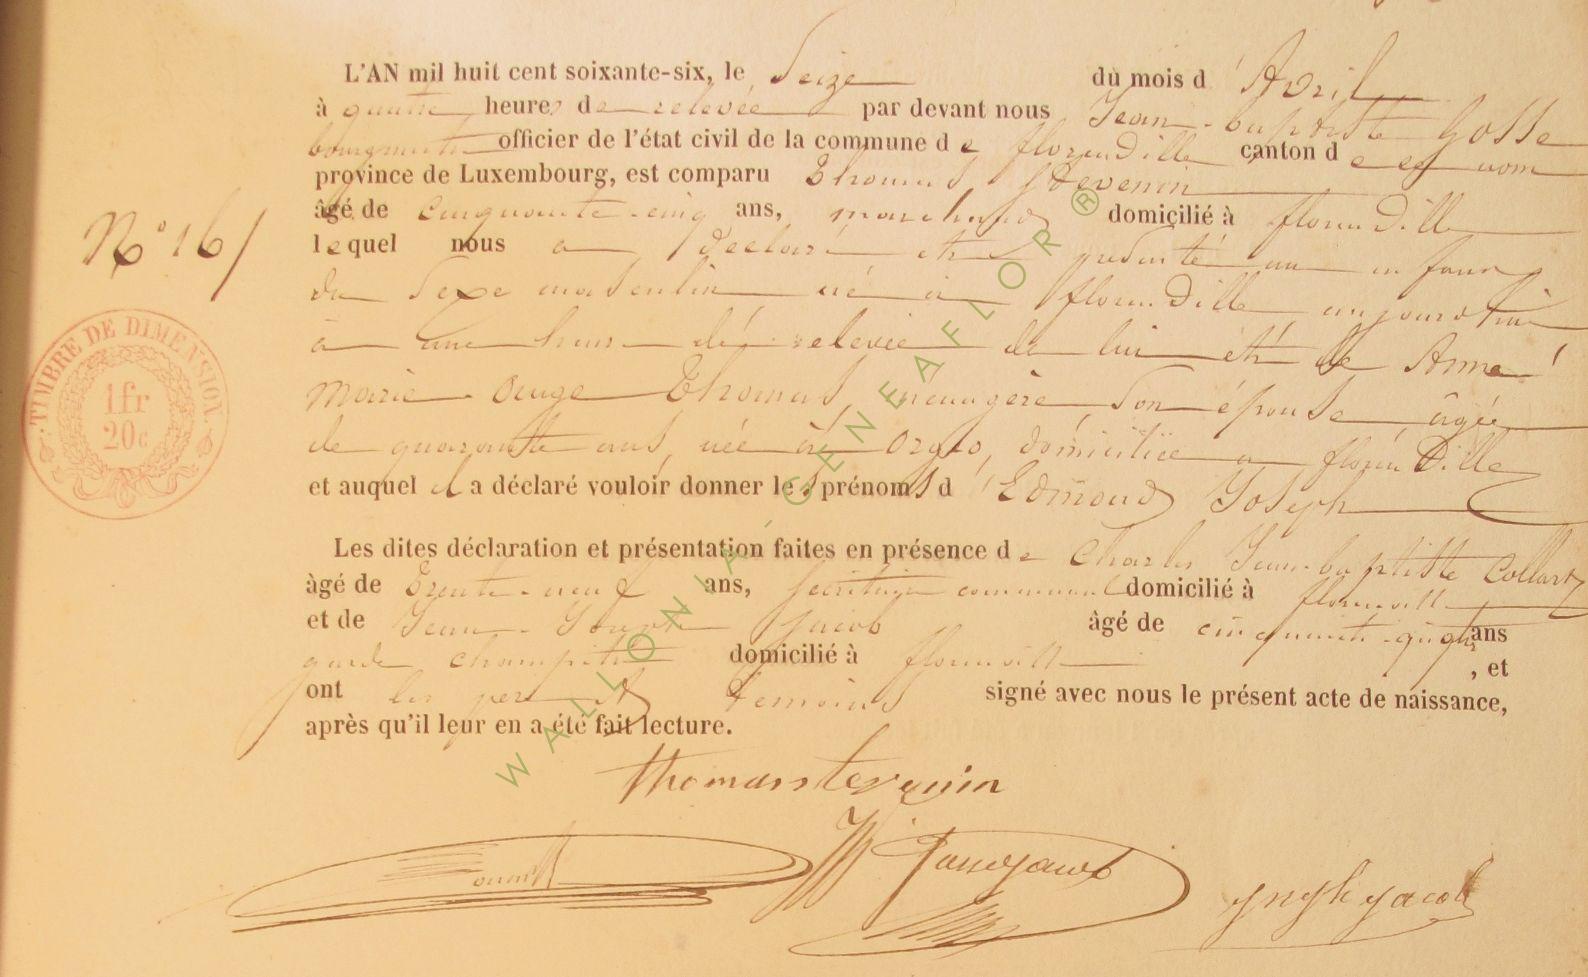 L'AN mil huit cent soixante-six, le Seize du mois d'Avril
à quatre heures de relevée par devant nous Jean-baptiste Gosse
bourgmestre officier de l'état civil de la commune de florenville canton de ce nom
province de Luxembourg, est comparu Thomas Stevenin
N° 16/
âgé de cinquante-cinq ans, marchand domicilié à florenville
lequel nous a déclaré et présenté un enfant
du Sexe masculin né à florenville aujourd'hui
à une heure de relevée de lui et de Anne
marie Thomas, ménagère, Son épouse, âgée
de quarante ans, née à domiciliée à florenville
et auquel il a déclaré vouloir donner les prénoms d'Edmond Joseph
TIMBRE DE DIMENSION
1fr
20c
Les dites déclaration et présentation faites en présence de Charles Jean-baptiste Collart
âgé de trente-neuf ans, secrétaire communal domicilié à florenville
et de Jean-Joseph Jacob âgé de cinquante-quatre ans
garde champêtre domicilié à florenville, et
ont les père et témoins signé avec nous le présent acte de naissance,
après qu'il leur en a été fait lecture.
WALLONIA-GENEAFLOR ®
thomas stevenin